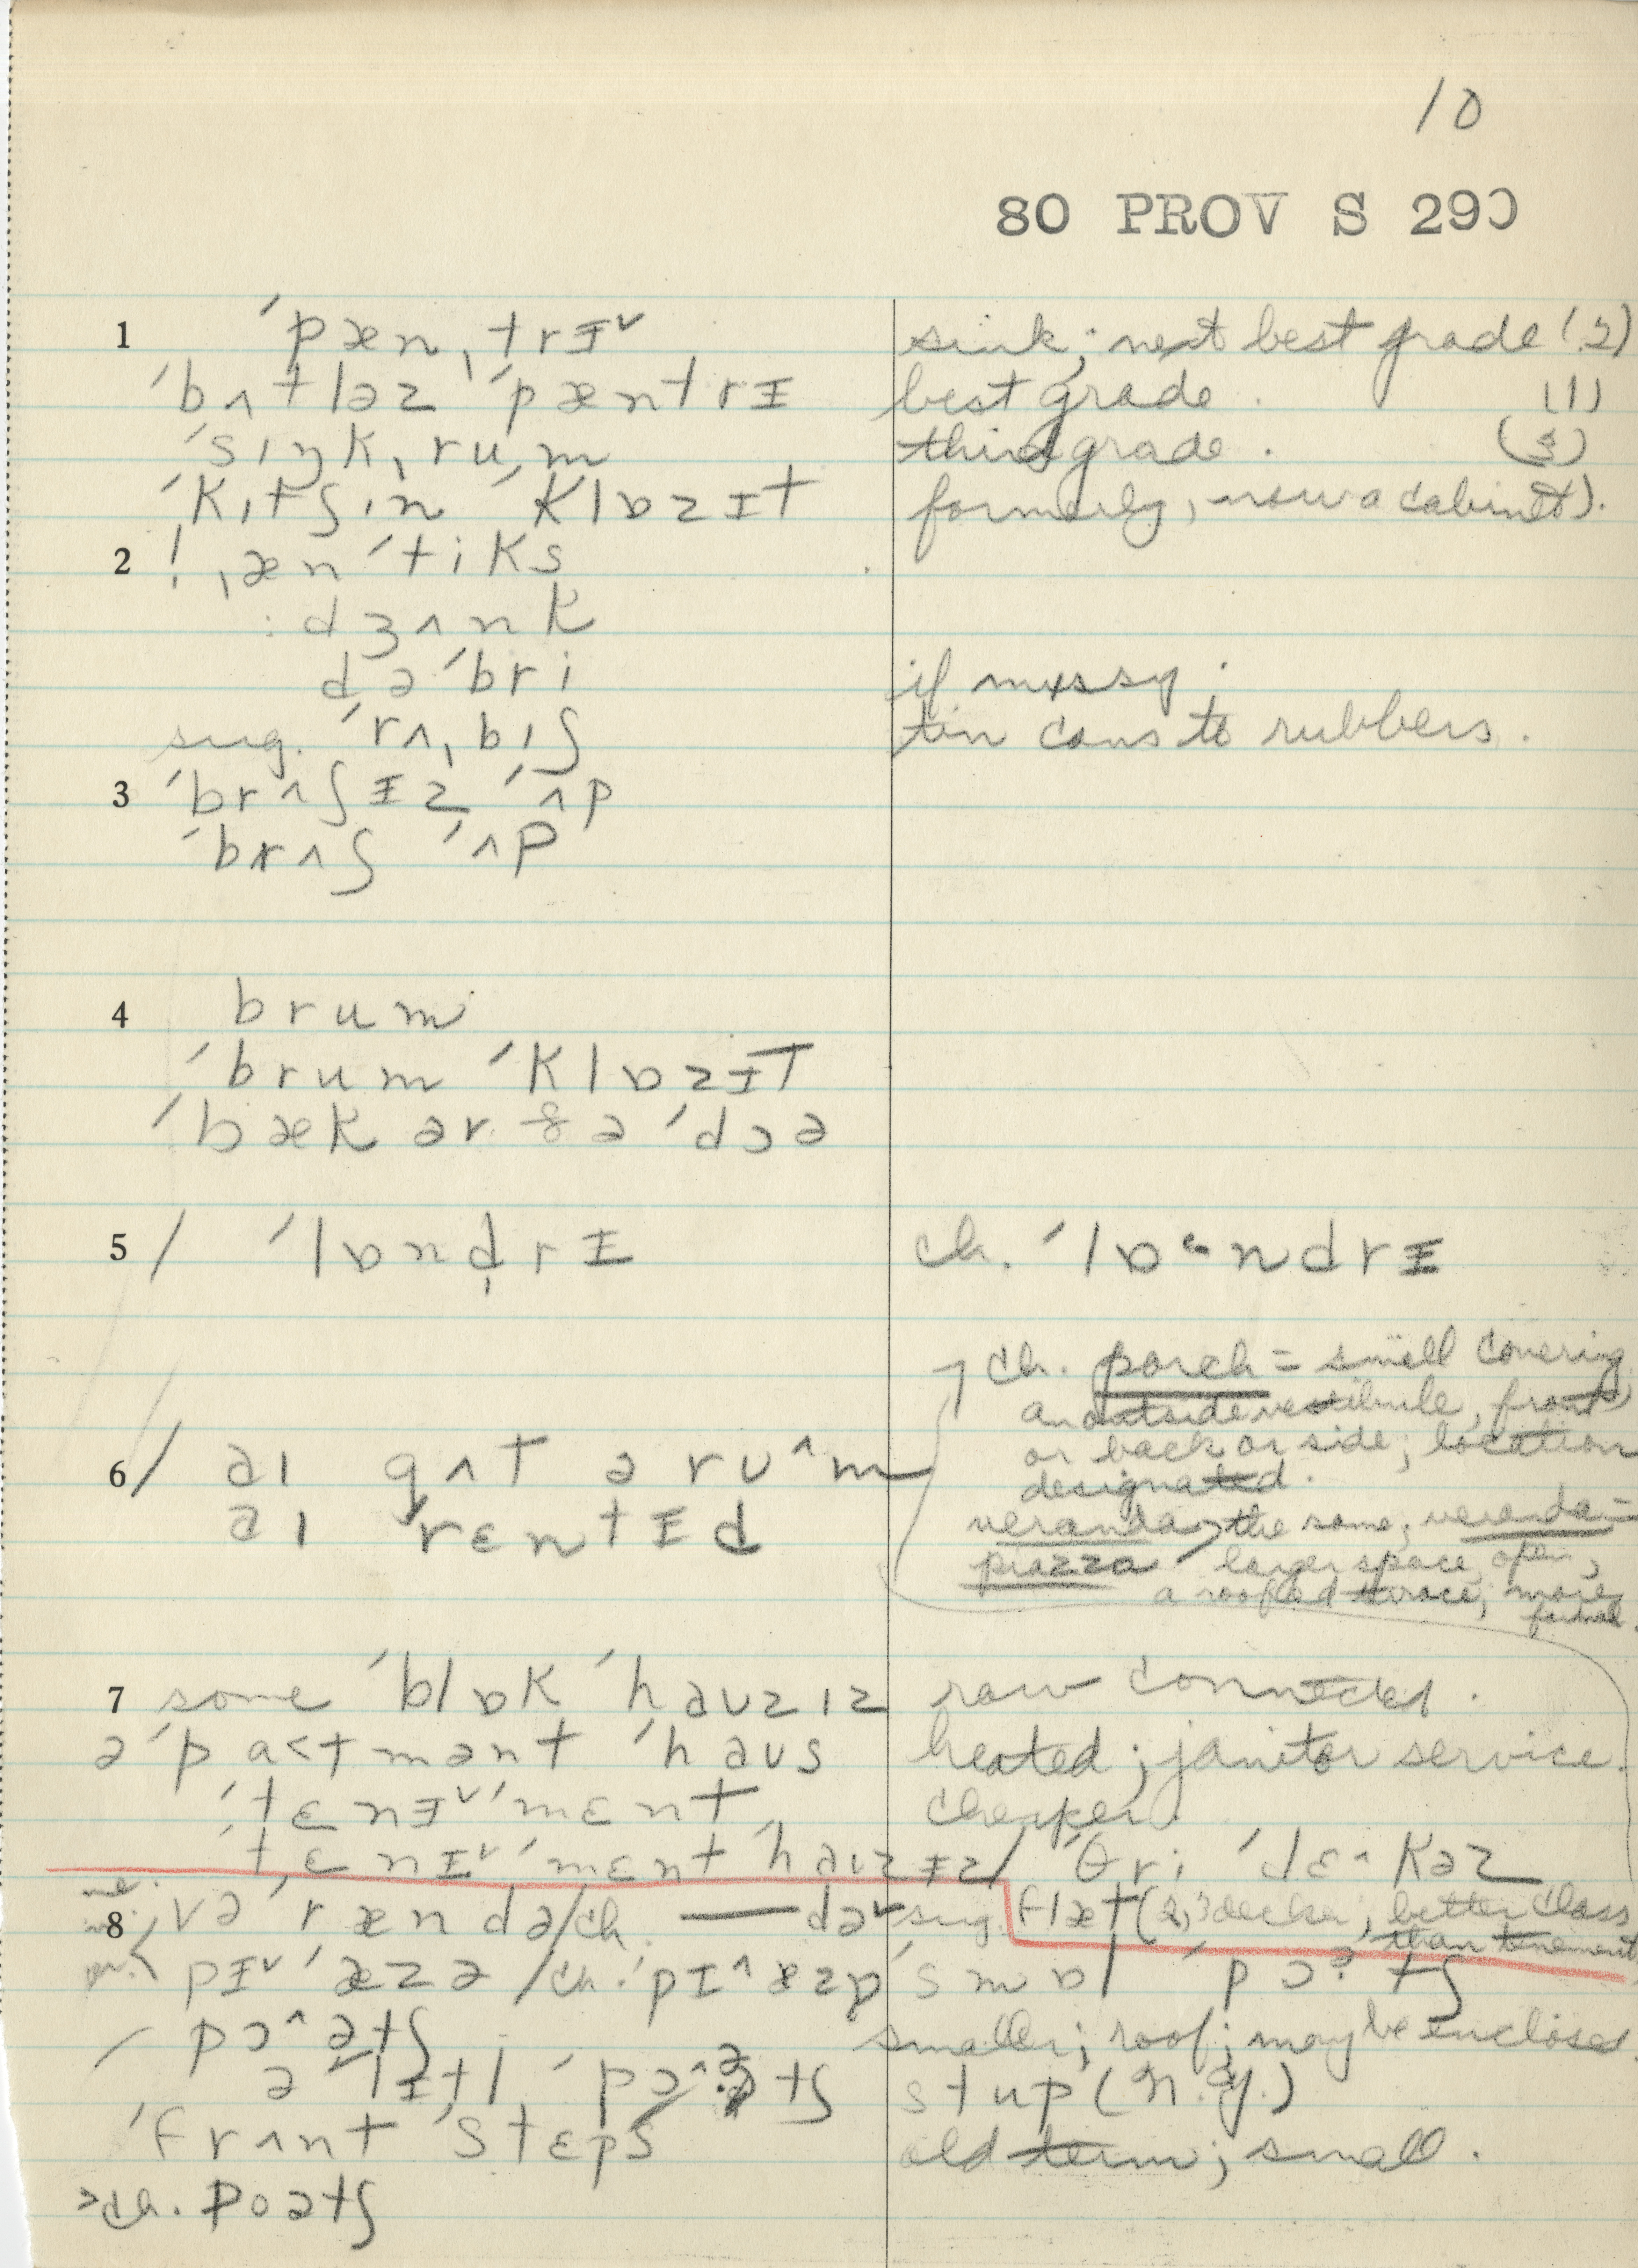 10
80 PROV S 290
1 ˊpæn ˌtrɪ˅ sink; next best grade (2)
ˊbʌtləz ˊpæntrɪ best grade. (1)
ˊsɪŋkˌrum third grade. (3)
ˊkɪtʃɪn ˊklɒzɪt formerly, now a cabinet).
2 ! ˌænˊtiks
: dʒʌnk
dəˊbri if messy;
sug. ˊrʌˌbɪʃ tin cans to rubbers.
3 ˊbrʌʃɪz ˊʌp
ˊbrʌʃ ˊʌp
4 brum
ˊbrum ˊklɒzɪt
ˊbæk əv ðə ˊdɔə
5 / ˊlɒndrɪ ch. ˊlɒ˂ndrɪ
ch. porch = small covering
an outside vestibule, front
or back or side; location
designated.
6 / aɪ gʌt ə rʊ^m
aɪ rɛntɪd
veranda, the same; veranda =
piazza larger space, open,
a roofed terrace; more
formal.
7 some ˊblɒk ˊhaʊzɪz row connected.
əˊpa<tmənt ˊhaʊs heated; janitor service.
ˊtɛnɪ˅ˊmɛnt cheaper.
ˊtɛnɪ˅ˊmɛnt ˊhaʊzɪz / ˊθri ˊdɛ^kəz
8 vəˊrændə / ch. —— də˅ sug. flæt (2, 3 decker; better class
than tenement
pɪ˅ˊæzə / ch. pɪ^æzɒ ˊsmɒl ˊpɔətʃ
/ pɔ^ətʃ smaller; roof; may be enclosed.
ə ˊlɪtl ˊpɔ^ətʃ stup (N.Y.)
ˊfrʌnt ˊstɛps old term; small.
>ch. poətʃ